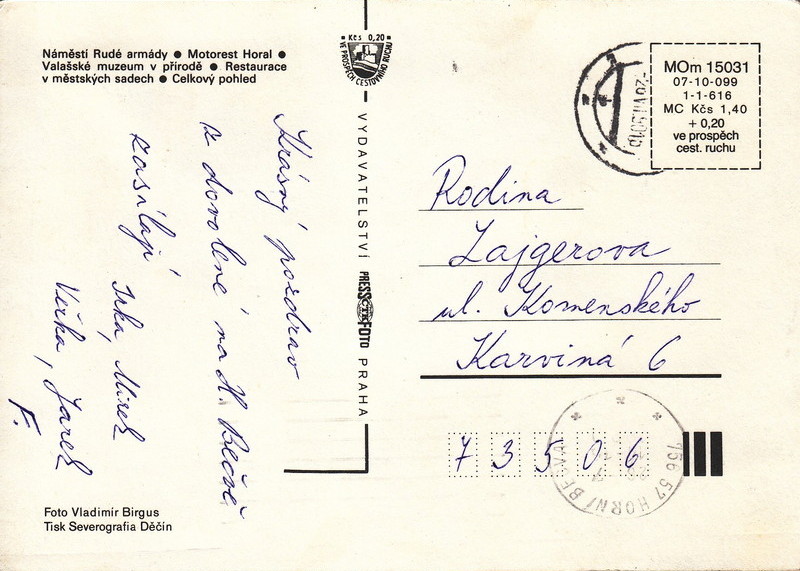 Náměstí Rudé armády ● Motorest Horal ●
Valašské muzeum v přírodě ● Restaurace
v městských sadech ● Celkový pohled
Krásný pozdrav
z dovolené na H. Bečvě
zasílají
Jrka, Mirek
Věrka, Jarek
F.
Foto Vladimír Birgus
Tisk Severografia Děčín
Kčs 0,20
VE PROSPĚCH CESTOVNÍHO RUCHU
VYDAVATELSTVÍ PRESSFOTO PRAHA
ČTK
MOm 15031
07-10-099
1-1-616
MC Kčs 1,40
+ 0,20
ve prospěch
cest. ruchu
Rodina
Zajgerova
ul. Komenského
Karviná 6
73506
756 57 HORNÍ BEČVA